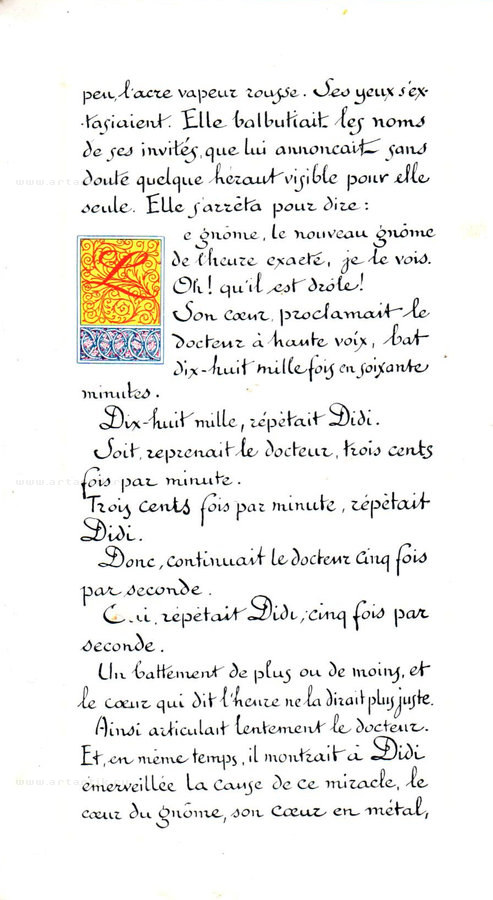 peu, l'acre vapeur rousse. Ses yeux s'ex-
-tasiaient. Elle balbutiait les noms
de ses invités, que lui annoncait sans
doute quelque héraut visible pour elle
seule. Elle s'arrêta pour dire :
Le gnôme, le nouveau gnôme
de l'heure exacte, je le vois.
Oh! qu'il est drôle!
Son cœur, proclamait le
docteur à haute voix, bat
dix-huit mille fois en soixante
minutes.
Dix-huit mille, répétait Didi.
Soit, reprenait le docteur, trois cents
fois par minute.
Trois cents fois par minute, répétait
Didi.
Donc, continuait le docteur cinq fois
par seconde.
répétait Didi, cinq fois par
seconde.
Un battement de plus ou de moins, et
le cœur qui dit l'heure ne la dirait plus juste.
Ainsi articulait lentement le docteur.
Et, en même temps, il montrait à Didi
émerveillée la cause de ce miracle, le
cœur du gnôme, son cœur en métal,